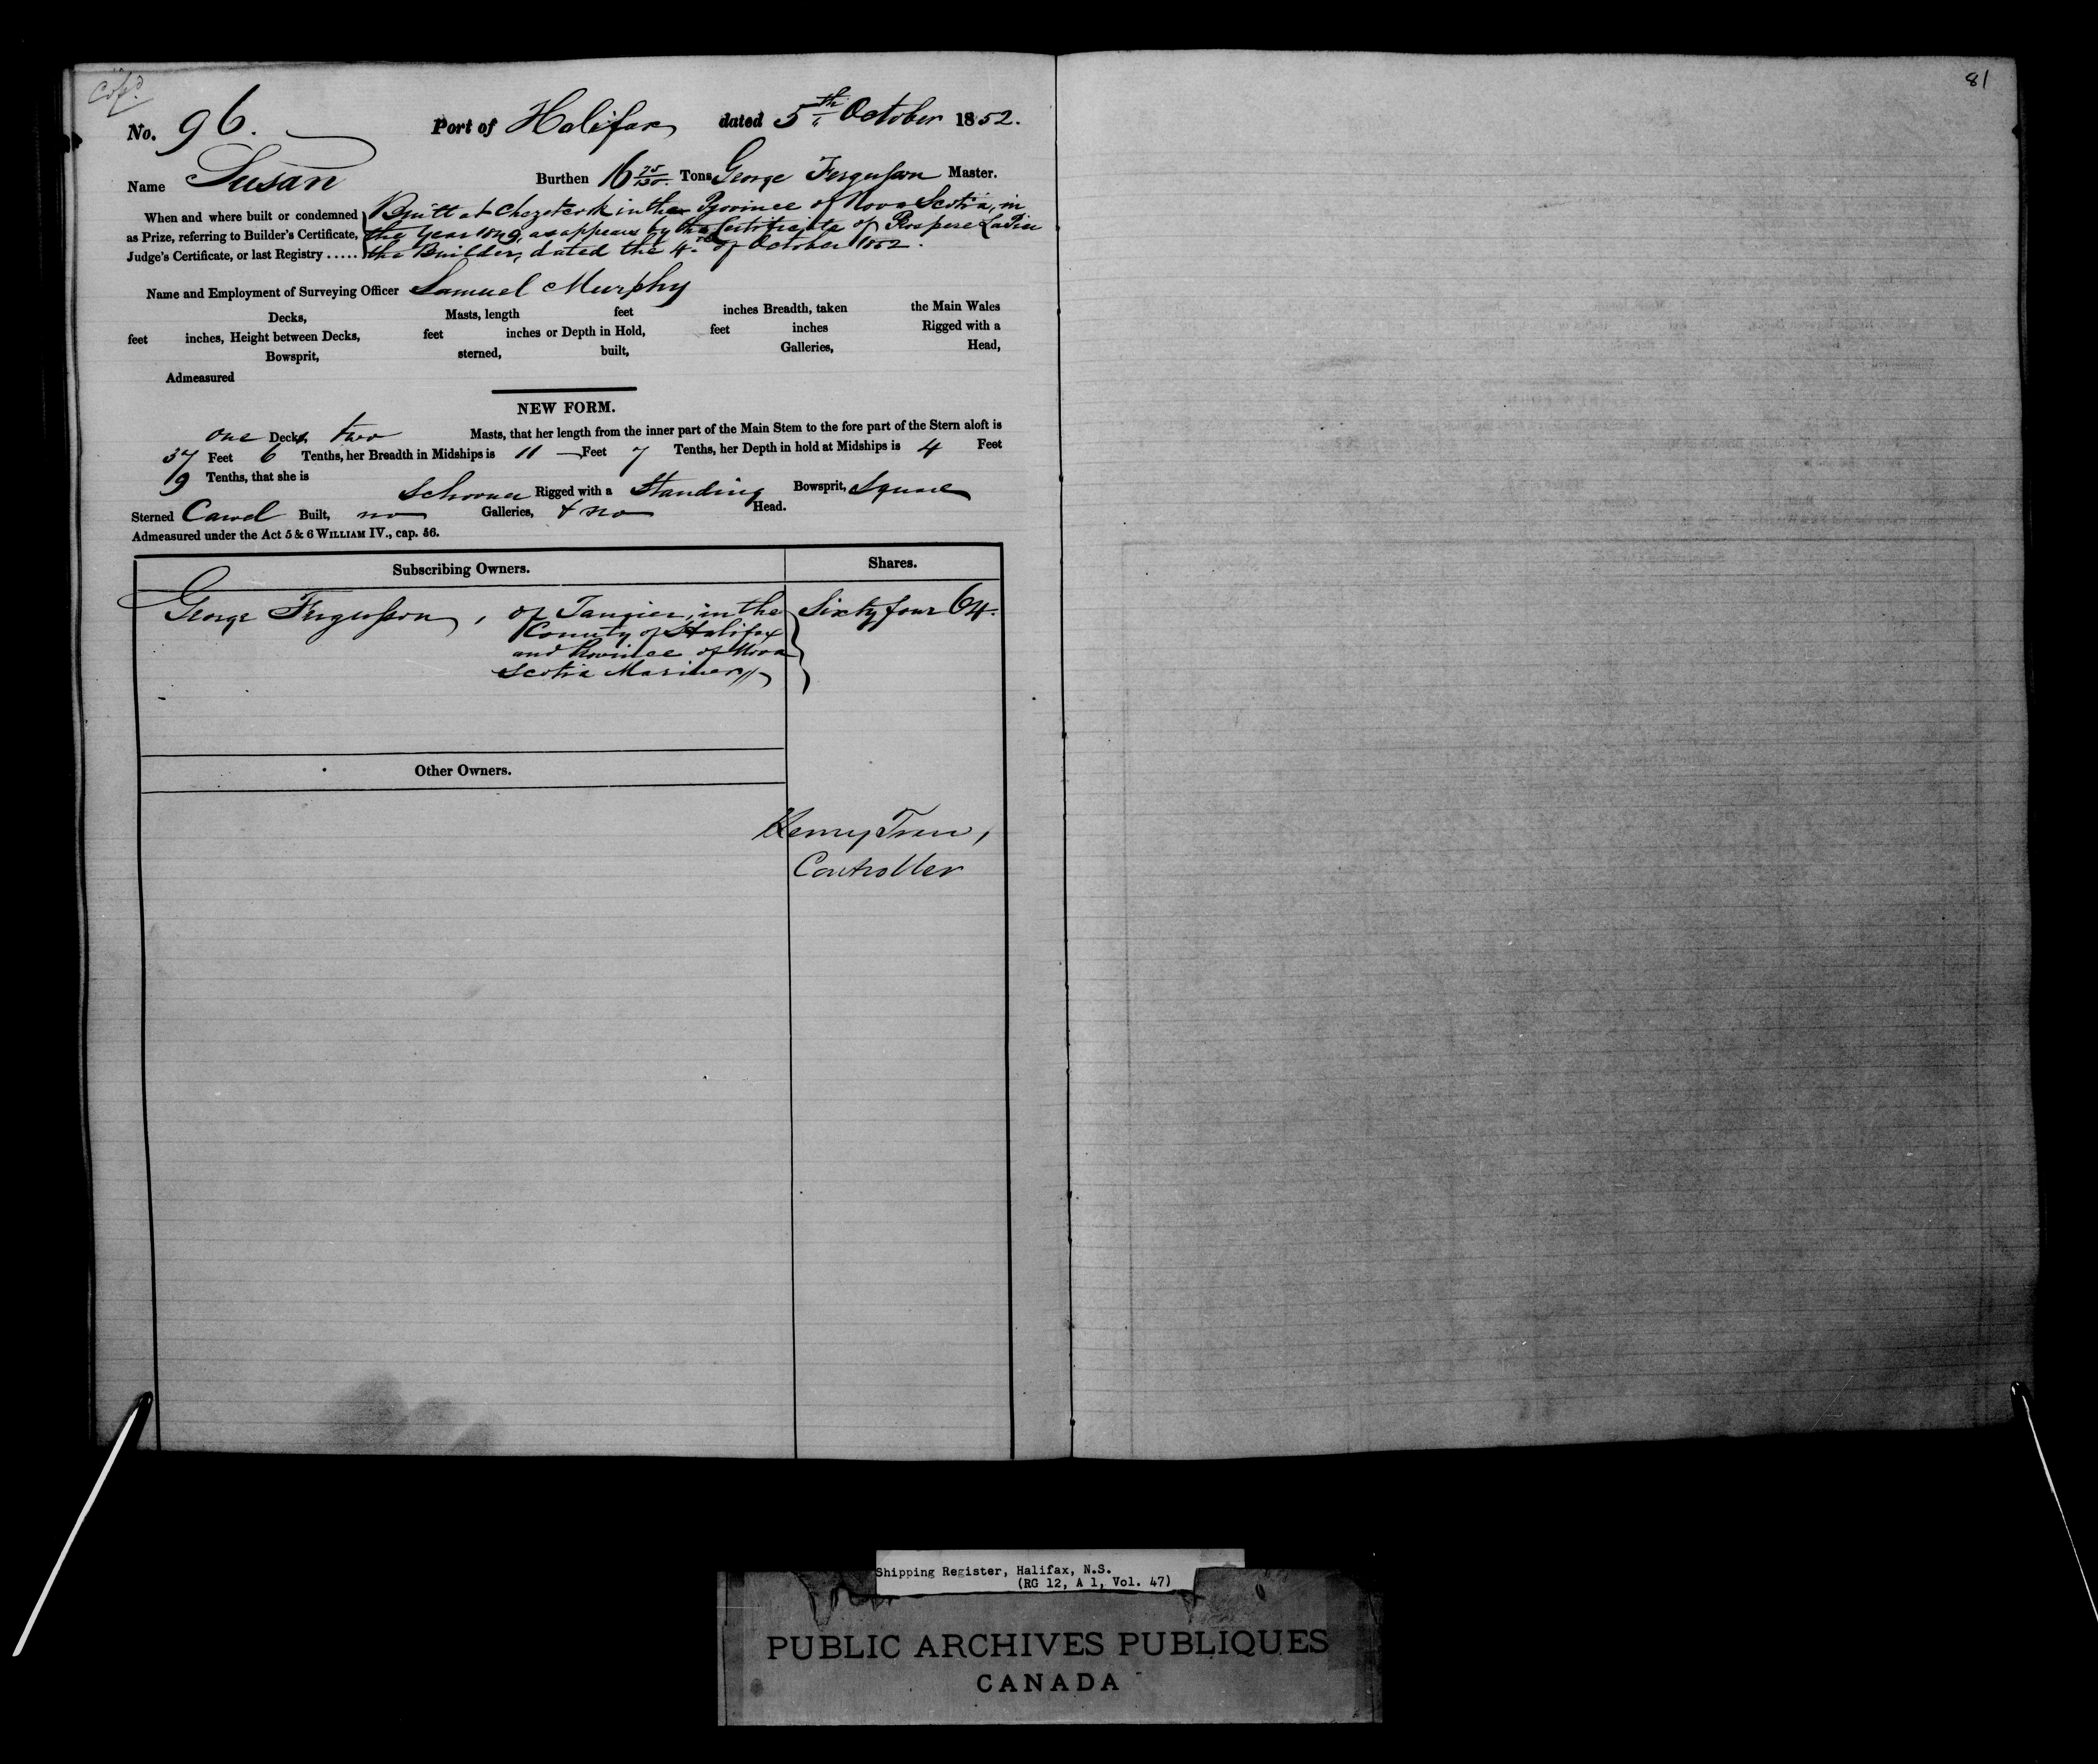 Copd.
81
No. 96. Port of Halifax dated 5th October 1852.
Name Susan Burthen 16 75/130 Tons George Fergusson Master.
When and where built or condemned Built at Chezetcook in the Province of Nova Scotia, in
as Prize, referring to Builder's Certificate, the Year 1849, as appears by the Certificate of Prospere LaPin
Judge's Certificate, or last Registry ..... the Builder, dated the 4th of October 1852.
Name and Employment of Surveying Officer Samuel Murphy
Decks, Masts, length feet inches Breadth, taken the Main Wales
feet inches, Height between Decks, feet inches or Depth in Hold, feet inches Rigged with a
Bowsprit, sterned, built, Galleries, Head,
Admeasured
NEW FORM.
one Decks two Masts, that her length from the inner part of the Main Stem to the fore part of the Stern aloft is
37 Feet 6 Tenths, her Breadth in Midships is 11 Feet 7 Tenths, her Depth in hold at Midships is 4 Feet
9 Tenths, that she is
Schooner Rigged with a Standing Bowsprit, Square
Sterned Carvel Built, no Galleries, & no Head.
Admeasured under the Act 5 & 6 WILLIAM IV., cap. 56.
Subscribing Owners. Shares.
George Fergusson, of Tangier, in the Sixty four 64.
County of Halifax
and Province of Nova
Scotia Mariner
Other Owners.
Henry Tren,
Controller
Shipping Register, Halifax, N.S.
(RG 12, A 1, Vol. 47)
PUBLIC ARCHIVES PUBLIQUES
CANADA